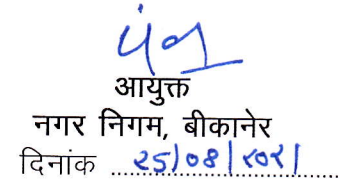 आयुक्त
नगर निगम, बीकानेर
दिनांक 25/08/2021